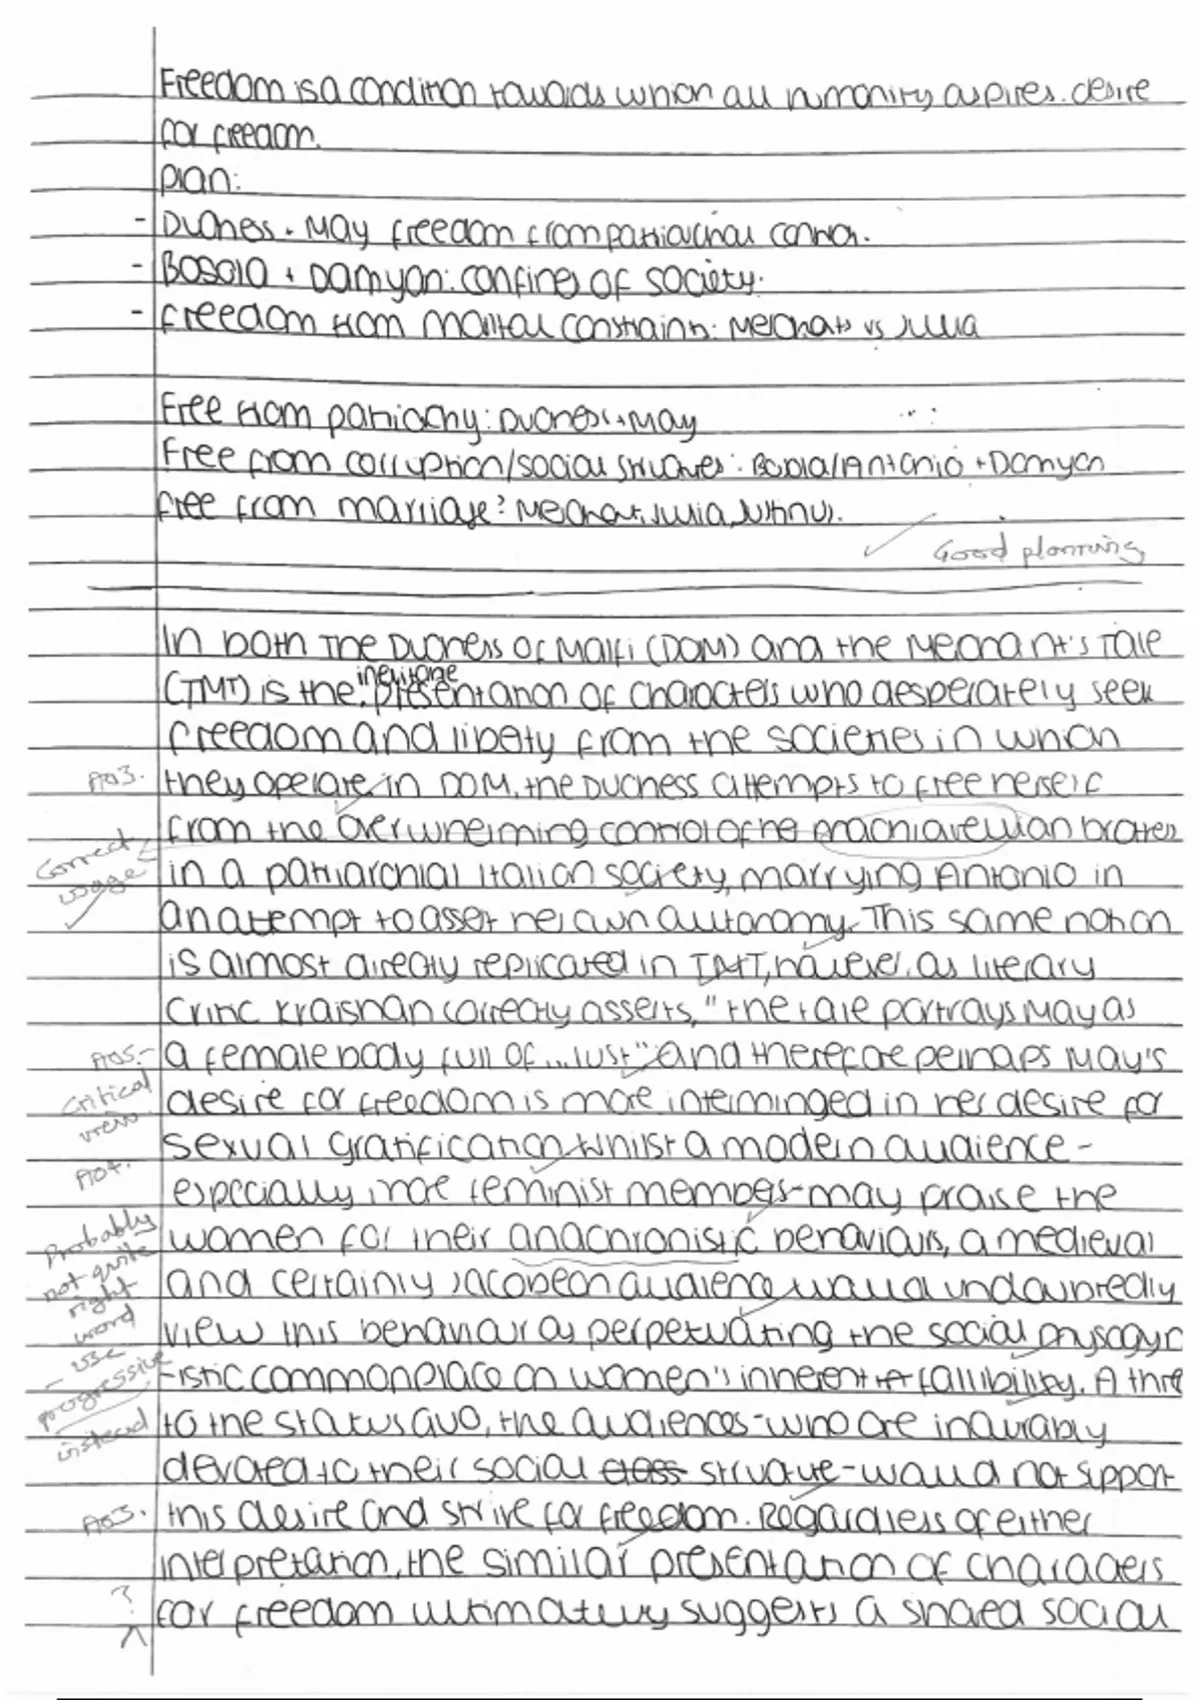 Freedom is a condition towards which all humanity aspires. desire
for freedom.
Plan:
- Duchess + May freedom from patriarchal control.
- Bosola + Damyan: confines of society.
- freedom from marital constraints: Merchats vs Julia
Free from patriachy: Duchess + May
Free from corruption/social structures: Bosola/Antonio + Damyan
free from marriage? Merchat, Julia, Justinus.
✓ Good planning
In both The Duchess of Malfi (DOM) and the Merchant's Tale
inevitable
(TMT) is the presentation of characters who desperately seek
freedom and liberty from the societies in which
AO3. they operate, in DOM, the Duchess attempts to free herself
from the overwhelming control of he machiavellian brothers
Correct usage ✓
in a patriarchial Italian society, marrying Antonio in
an attempt to assert her own autonomy. This same notion
is almost directly replicated in TMT, however, as literary
critic Kraishan correctly asserts, "the tale portrays May as
AO5- Critical view
a female body full of...lust" and therefore perhaps May's
desire for freedom is more interminged in her desire for
AO4.
sexual gratification. Whilst a modern audience -
especially more feminist members - may praise the
women for their anachronistic behaviours, a medieval
Probably not quite right word - use progressive instead
and certainly Jacobean audience would undoubtedly
view this behaviour as perpetuating the social physogyc
-istic commonplace on women's inherent fallibility. A thre
to the status quo, the audiences - who are incurably
devoted to their social class structure - would not support
AO3. this desire and strive for freedom. Regardless of either
interpretation, the similar presentation of characters
? ^
for freedom ultimately suggests a shared social